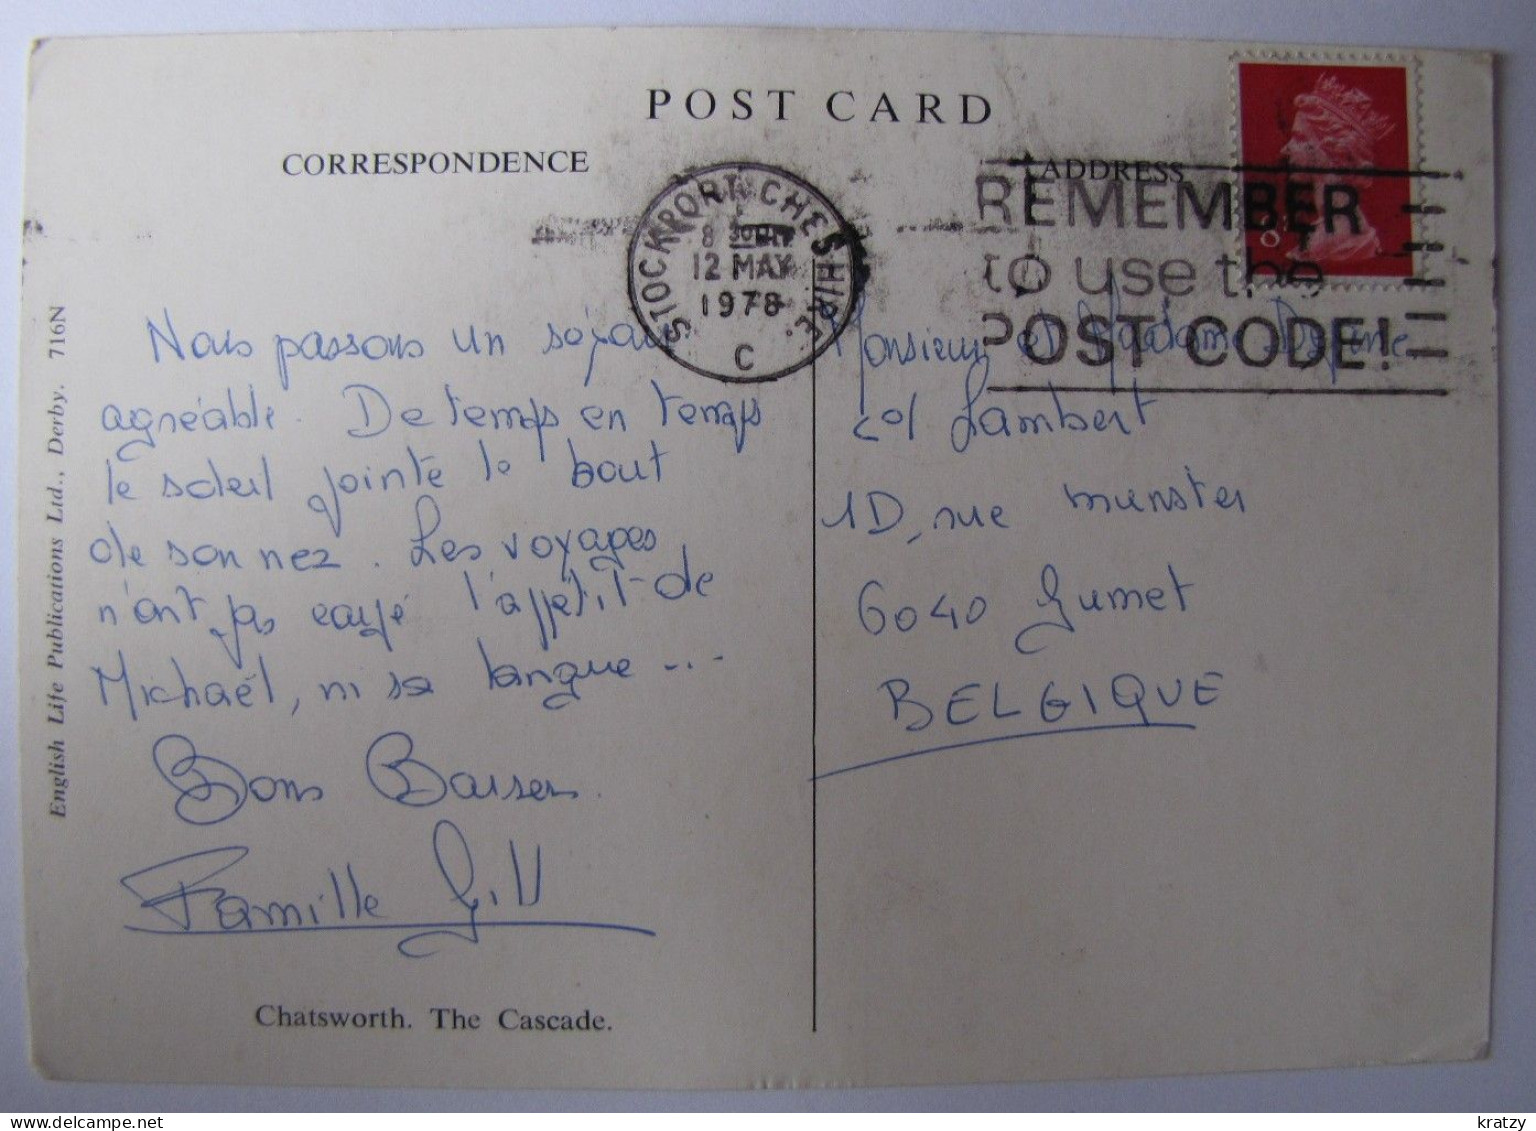 POST CARD
CORRESPONDENCE
ADDRESS
STOCKPORT CHESHIRE.
8 30 PM
12 MAY
1978
C
REMEMBER
to use the
POST CODE!
Nous passons un séjour
agréable. De temps en temps
le soleil pointe le bout
de son nez. Les voyages
n'ont pas
l'appétit de
Michaël, ni sa langue ...
Bons Baisers.
Famille Gill
Monsieur et Madam
Lambert
1D, rue munster
6040 Jumet
BELGIQUE
Chatsworth. The Cascade.
English Life Publications Ltd., Derby. 716N
kratzy